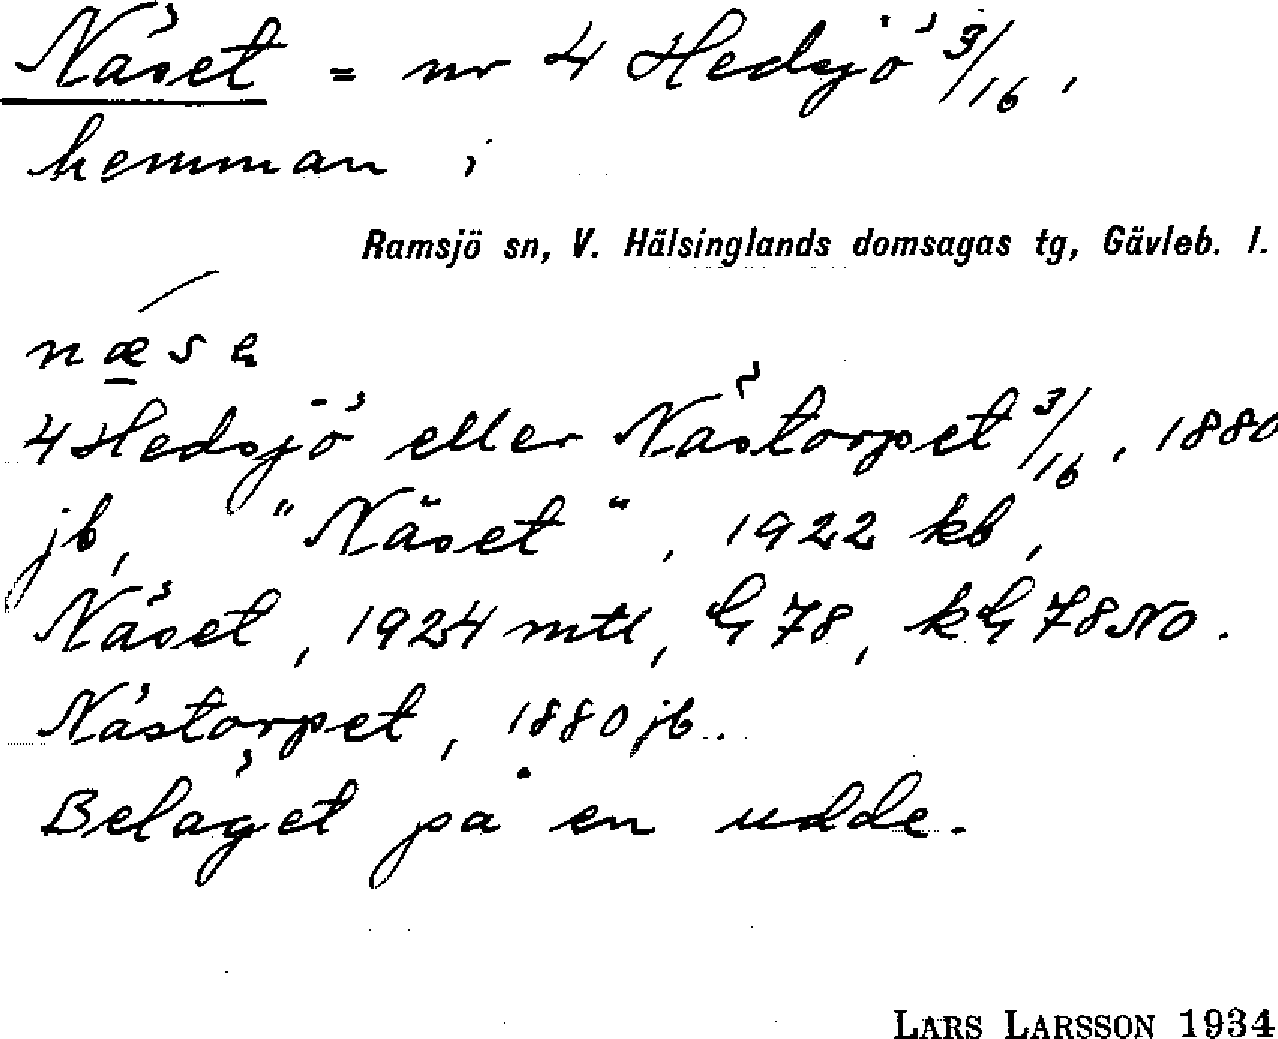 Näset = nr 4 Hedsjö 3/16,
hemman i
Ramsjö sn, V. Hälsinglands domsagas tg, Gävleb. l.
næse
4 Hedsjö eller Nästorpet 3/16, 1880
jb, "Näset", 1922 kb,
Näset, 1924 mtl, G 78, kG 78 NO.
Nästorpet, 1880 jb.
Beläget på en udde.
LARS LARSSON 1934